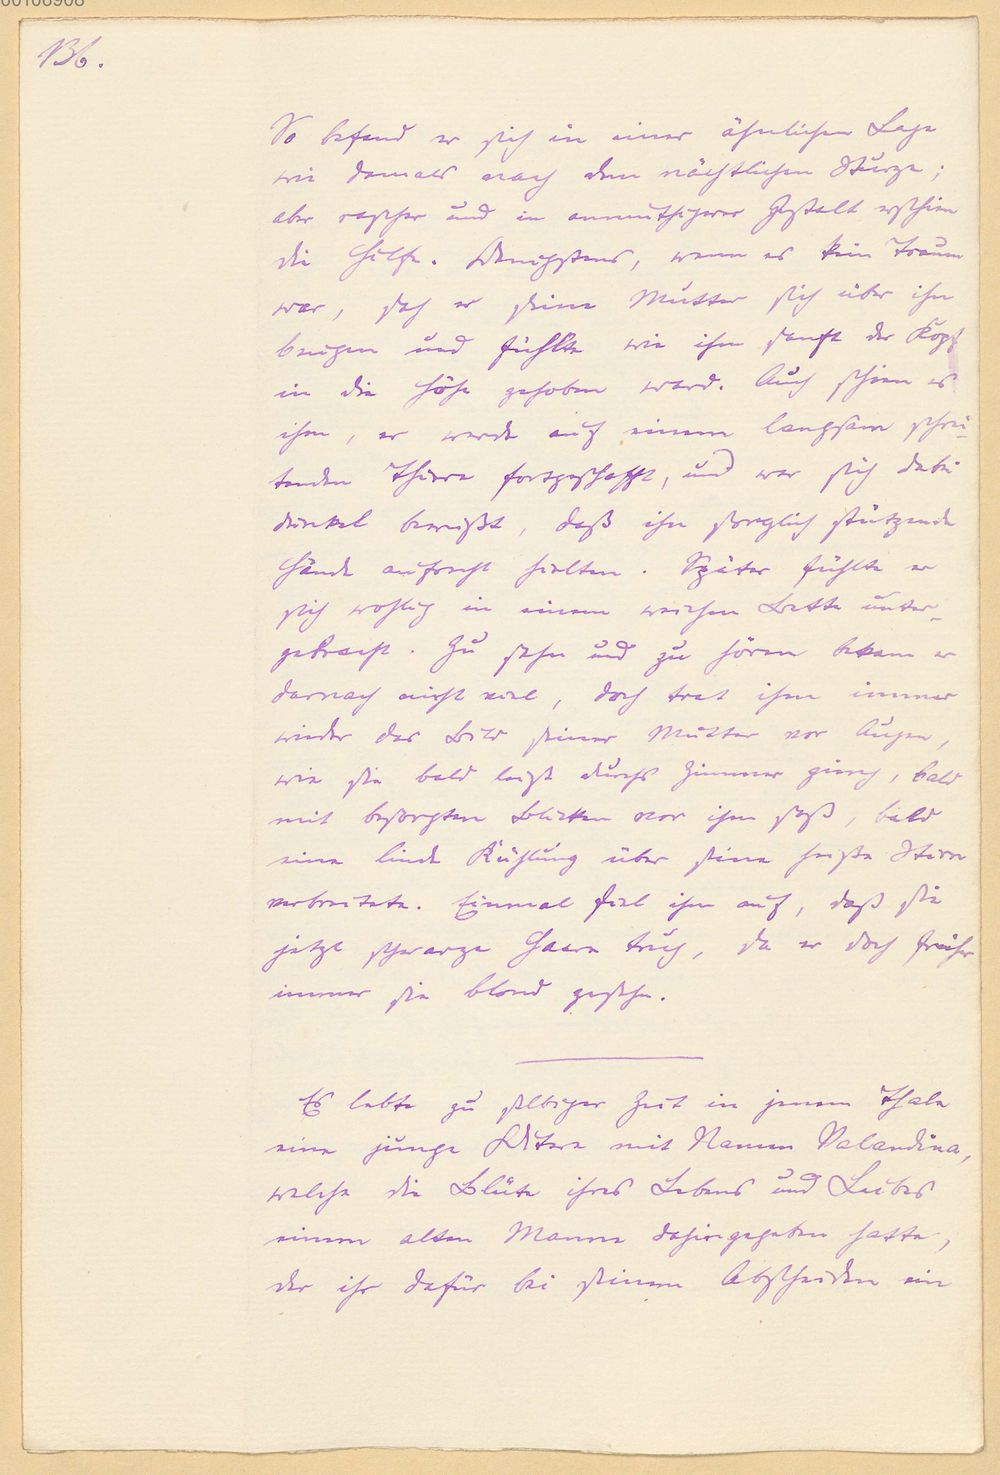 00106908
136.
So befand er sich in einer ähnlichen Lage
wie damals nach dem nächtlichen Sturze;
aber rascher und in anmuthigerer Gestalt erschien
die Hilfe. Wenigstens, wenn es kein Traum
war, sah er seine Mutter sich über ihn
beugen und fühlte wie ihm sanft der Kopf
in die Höhe gehoben ward. Auch schien es
ihm, er werde auf einem langsam schrei-
tenden Thiere fortgeschafft, und war sich dabei
dunkel bewußt, daß ihn sorglich stützende
Hände aufrecht hielten. Später fühlte er
sich wohlig in einem weichen Bette unter-
gebracht. Zu sehn und zu hören bekam er
darnach nicht viel, doch trat ihm immer
wieder das Bild seiner Mutter vor Augen,
wie sie bald leise durchs Zimmer gieng, bald
mit besorgten Blicken vor ihm saß, bald
eine linde Kühlung über seine heiße Stirn
verbreitete. Einmal fiel ihm auf, daß sie
jetzt schwarze Haare trug, da er doch früher
immer sie blond gesehn.
Es lebte zu selbiger Zeit in jenem Thale
eine junge Witwe mit Namen Valandina,
welche die Blüte ihres Lebens und Leibes
einem alten Manne dahingegeben hatte,
der ihr dafür bei seinem Abscheiden ein